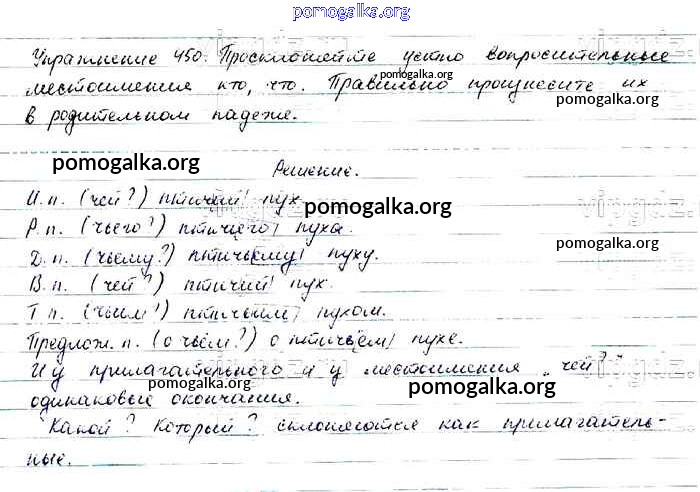 pomogalka.org
Упражнение 450. Просклоняйте устно вопросительные
pomogalka.org
местоимения кто, что. Правильно произнесите их
pomogalka.org
в родительном падеже.
pomogalka.org
Решение.
И.п. (чей?) птичий пух
pomogalka.org
Р.п. (чьего?) птичьего пуха.
vipgdz
pomogalka.org
Д.п. (чьему?) птичьему пуху.
В.п. (чей?) птичий пух.
Т п. (чьим?) птичьим пухом.
Предлож. п. (о чьём?) о птичьем пухе.
И у прилагательного и у местоимения „чей?"
pomogalka.org
pomogalka.org
одинаковые окончания.
Какой? Который? склоняются как прилагатель-
ные.